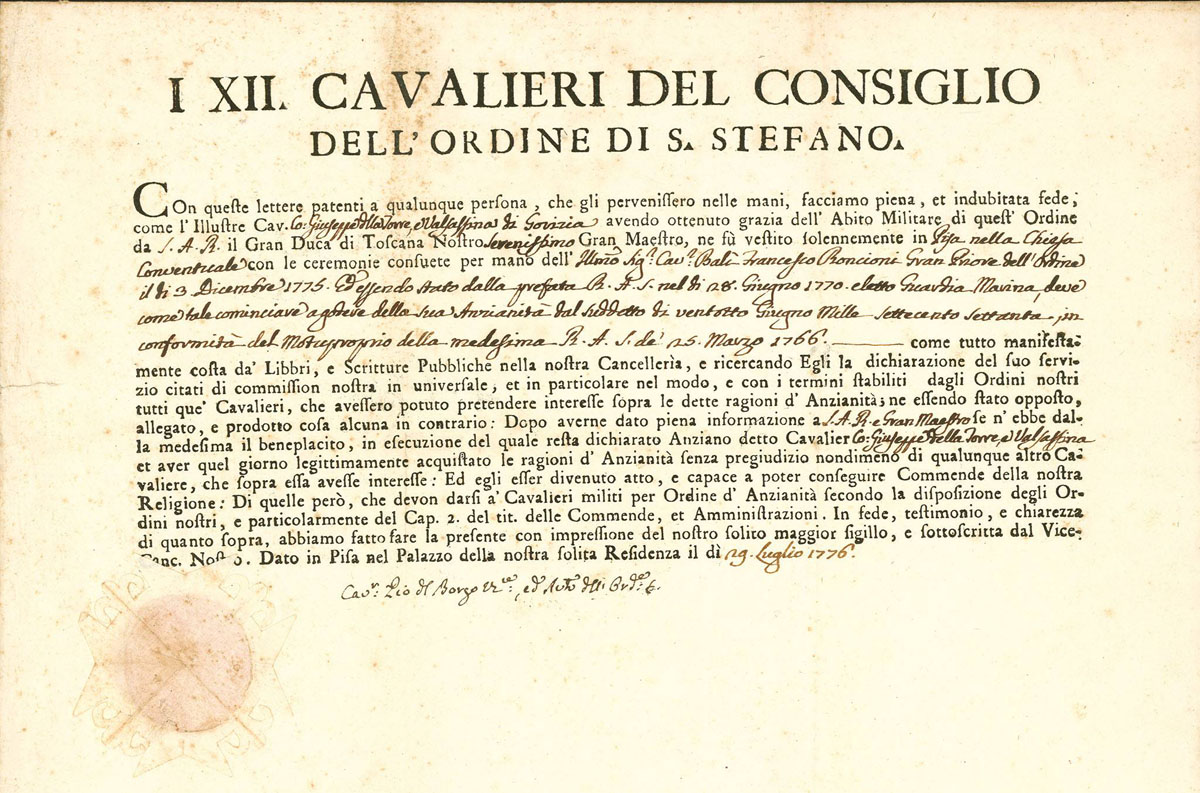 I XII. CAVALIERI DEL CONSIGLIO
DELL'ORDINE DI S. STEFANO.
COn queſte lettere patenti a qualunque perſona, che gli perveniſſero nelle mani, facciamo piena, et indubitata fede,
come l'Illuſtre Cav. Co: Giuseppe della Torre, e Valsassina di Gorizia avendo ottenuto grazia dell' Abito Militare di queſt' Ordine
da S. A. R. il Gran Duca di Toscana Noſtro Serenissimo Gran Maeſtro, ne fù veſtito ſolennemente in Pisa nella Chiesa
Conventuale con le ceremonie conſuete per mano dell' Illmo Sigr. Cavr. Balì Francesco Roncioni Gran Priore dell'Ordine
il dì 3 Dicembre 1775. Ed essendo stato dalla prefata R. A. S. nel dì 28. Giugno 1770. eletto Guardia Marina, deve
come tale cominciare a godere della sua Anzianità dal suddetto dì ventotto Giugno Mille settecento settanta, in
conformità del Motuproprio della medesima R. A. S. de' 25. Marzo 1766. come tutto manifeſta-
mente coſta da' Libbri, e Scritture Pubbliche nella noſtra Cancellerìa, e ricercando Egli la dichiarazione del ſuo ſervi-
zio citati di commiſſion noſtra in univerſale, et in particolare nel modo, e con i termini ſtabiliti dagli Ordini noſtri
tutti que' Cavalieri, che aveſſero potuto pretendere intereſſe ſopra le dette ragioni d' Anzianità; ne eſſendo ſtato oppoſto,
allegato, e prodotto coſa alcuna in contrario: Dopo averne dato piena informazione a S. A. R. e Gran Maestro ſe n' ebbe dal-
la medeſima il beneplacito, in eſecuzione del quale reſta dichiarato Anziano detto Cavalier Co: Giuseppe della Torre, e Valsassina
et aver quel giorno legittimamente acquiſtato le ragioni d' Anzianità ſenza pregiudizio nondimeno di qualunque altro Ca-
valiere, che ſopra eſſa aveſſe intereſſe: Ed egli eſſer divenuto atto, e capace a poter conſeguire Commende della noſtra
Religione: Di quelle però, che devon darſi a' Cavalieri militi per Ordine d' Anzianità ſecondo la diſpoſizione degli Or-
dini noſtri, e particolarmente del Cap. 2. del tit. delle Commende, et Amminiſtrazioni. In fede, teſtimonio, e chiarezza
di quanto ſopra, abbiamo fatto fare la preſente con impreſſione del noſtro ſolito maggior ſigillo, e ſottoſcritta dal Vice-
Canc. Noſtro. Dato in Piſa nel Palazzo della noſtra ſolita Reſidenza il dì 29. Luglio 1776.
Cavr. Pio dl Borgo